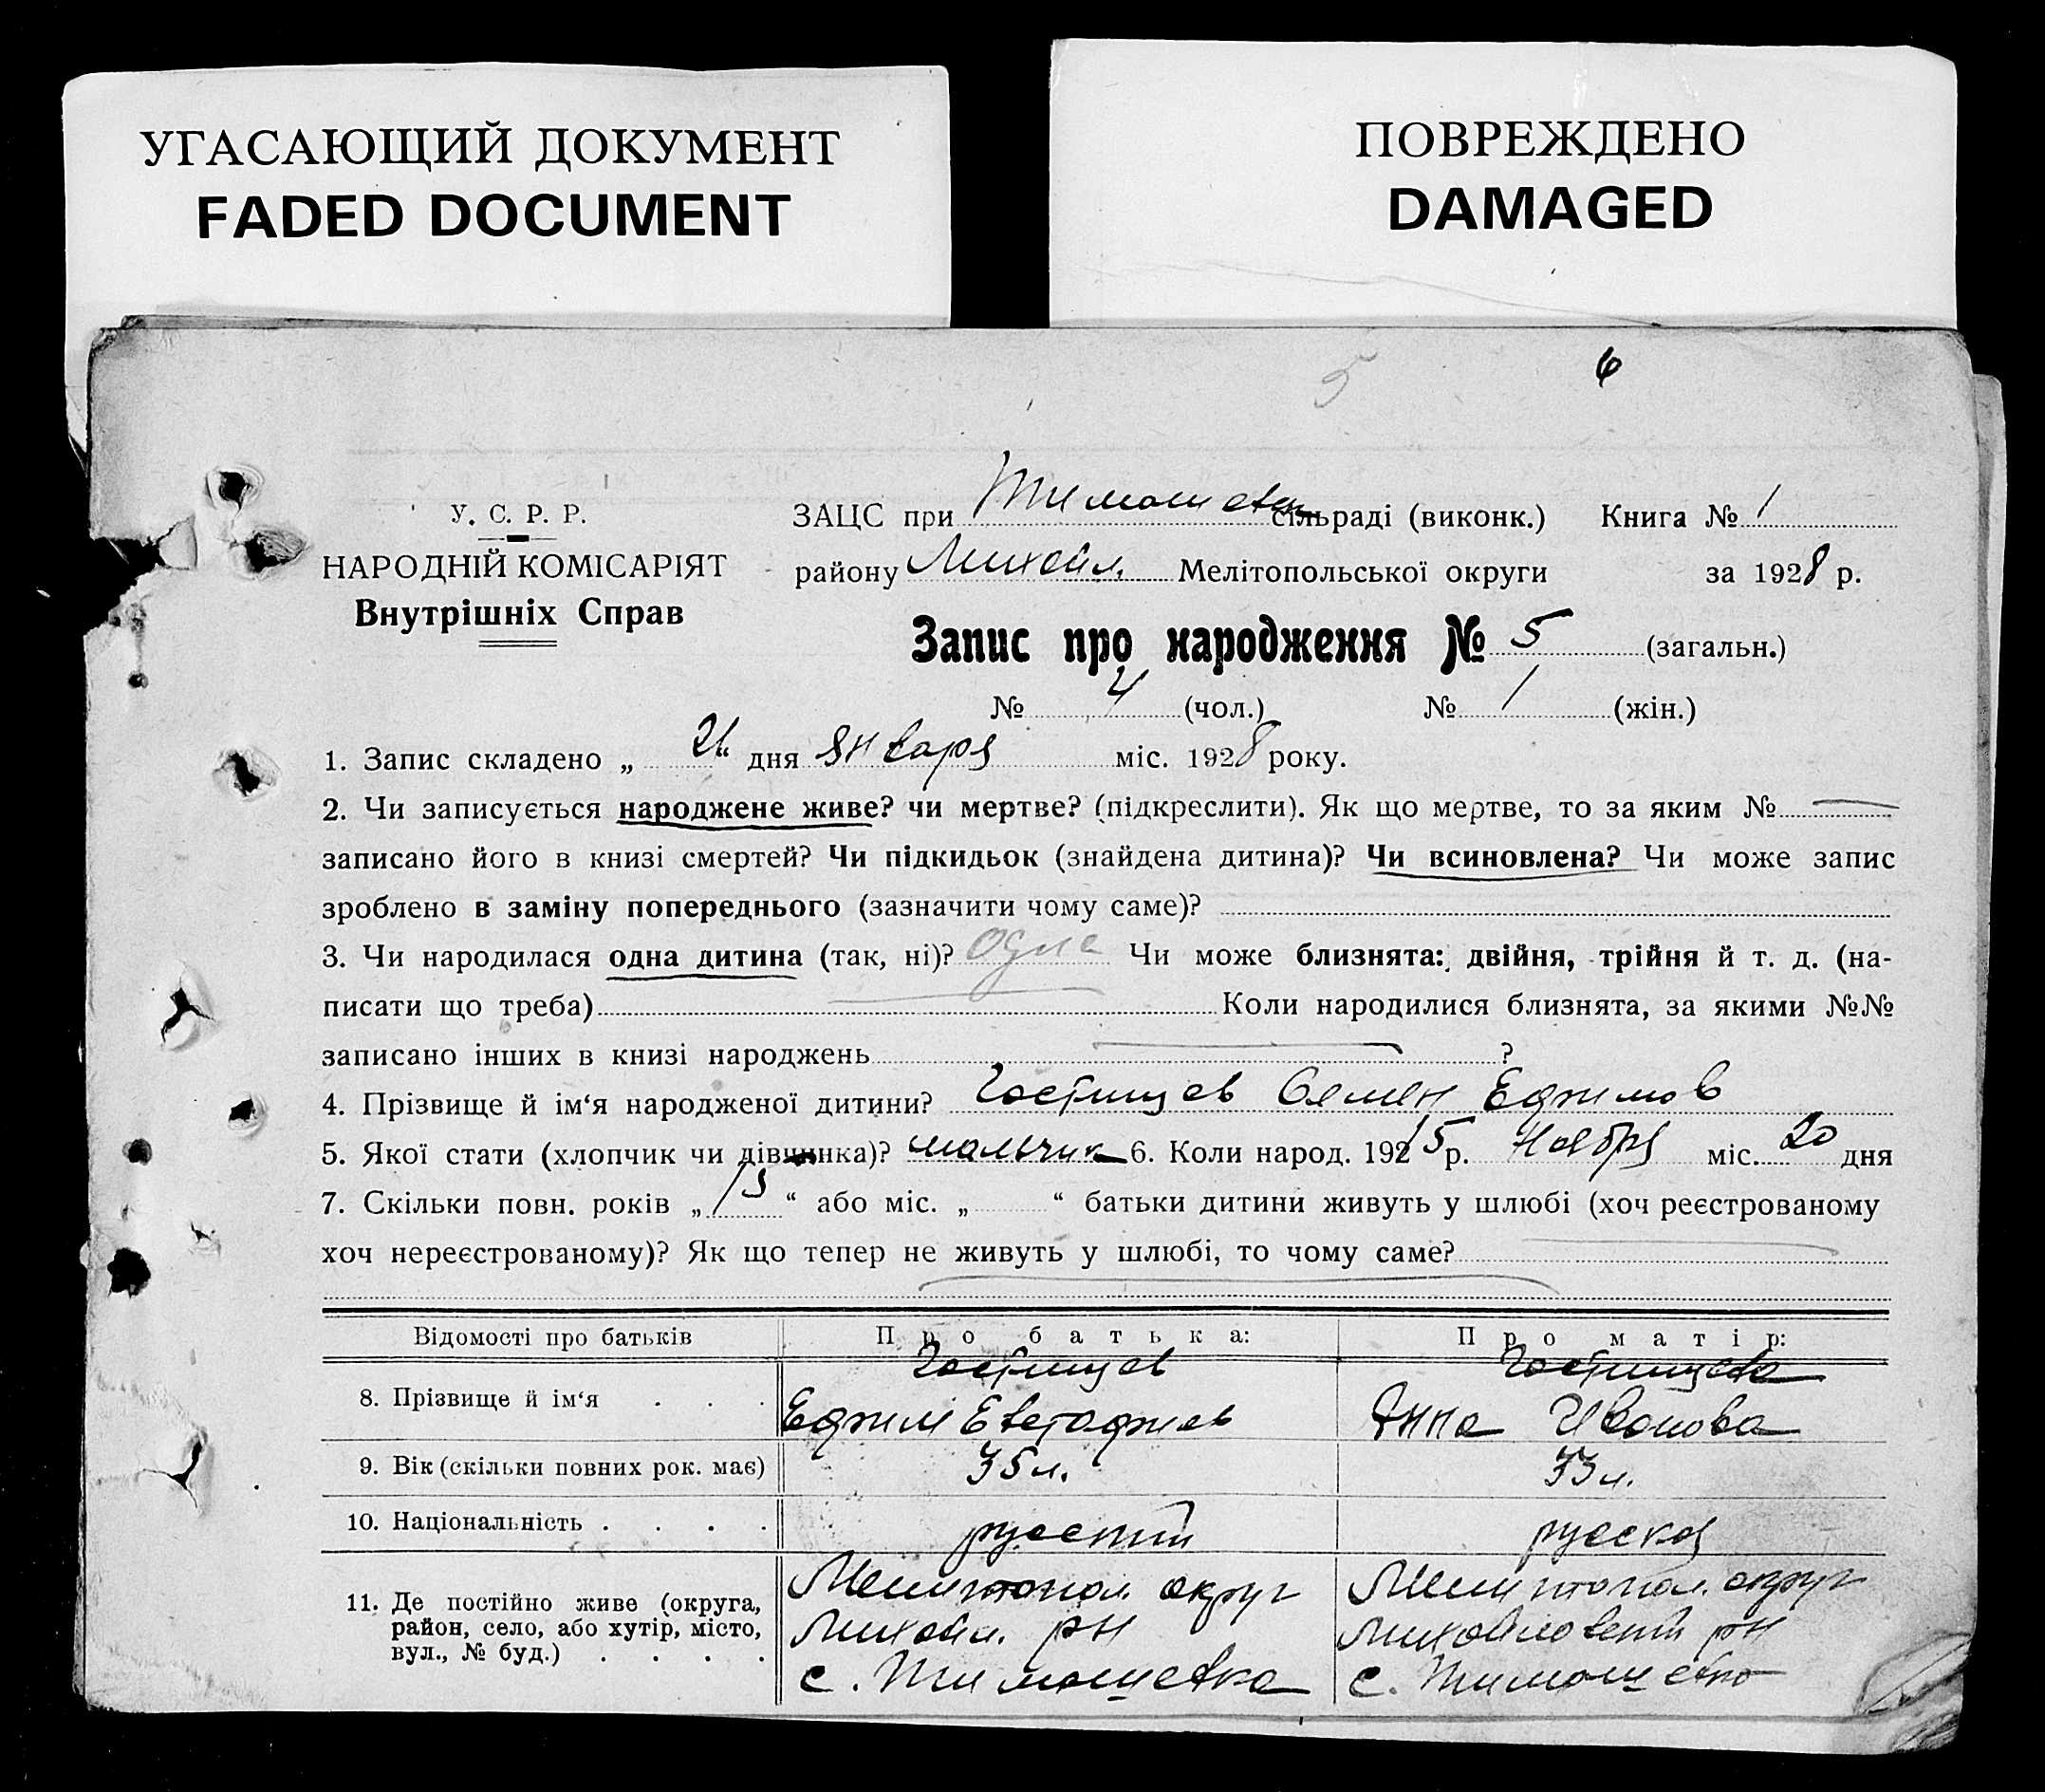 УГАСАЮЩИЙ ДОКУМЕНТ
FADED DOCUMENT
ПОВРЕЖДЕНО
DAMAGED
5 6
У. С. Р. Р.
НАРОДНІЙ КОМІСАРІЯТ
Внутрішніх Справ
ЗАЦС при Тимошевск сільраді (виконк.) Книга № 1
району Михайл. Мелітопольської округи за 1928 р.
Запис про народження № 5 (загальн.)
№ 4 (чол.) № 1 (жін.)
1. Запис складено „21“ дня Января міс. 1928 року.
2. Чи записується народжене живе? чи мертве? (підкреслити). Як що мертве, то за яким № —
записано його в книзі смертей? Чи підкидьок (знайдена дитина)? Чи всиновлена? Чи може запис
зроблено в заміну попереднього (зазначити чому саме)?
3. Чи народилася одна дитина (так, ні)? Одна Чи може близнята: двійня, трійня й т. д. (на-
писати що треба) — Коли народилися близнята, за якими №№
записано інших в книзі народжень — ?
4. Прізвище й ім‘я народженої дитини? Гостищев Семен Ефимов
5. Якої стати (хлопчик чи дівчинка)? мальчик 6. Коли народ. 1915 р. Ноября міс. 20 дня
7. Скільки повн. років „15“ або міс. „ “ батьки дитини живуть у шлюбі (хоч реєстрованому
хоч нереєстрованому)? Як що тепер не живуть у шлюбі, то чому саме? —
Відомості про батьків Про батька: Про матір:
8. Прізвище й ім‘я Гостищев Гостищева
Ефим Евстафиев Анна Иванова
9. Вік (скільки повних рок. має) 35 л. 33 л.
10. Національність русский русская
11. Де постійно живе (округа, район, село, або хутір, місто, вул., № буд.) Мелитопол. округ Мелитопол. округ
Михайл. рн Михайловский рн
с. Тимошевка с. Тимошевка